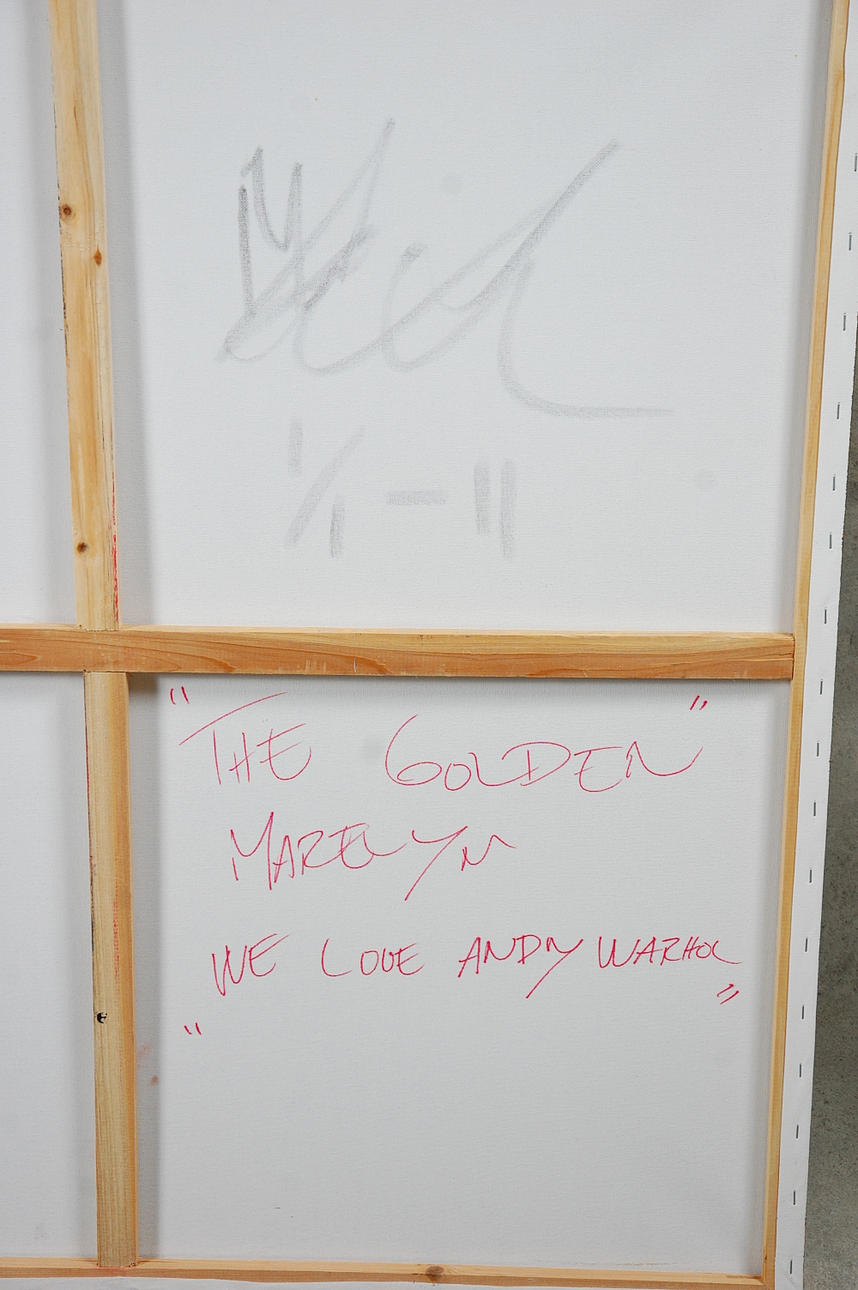 1/1 - 11
"THE GOLDEN"
MARELYN
WE LOVE ANDY WARHOL
" "